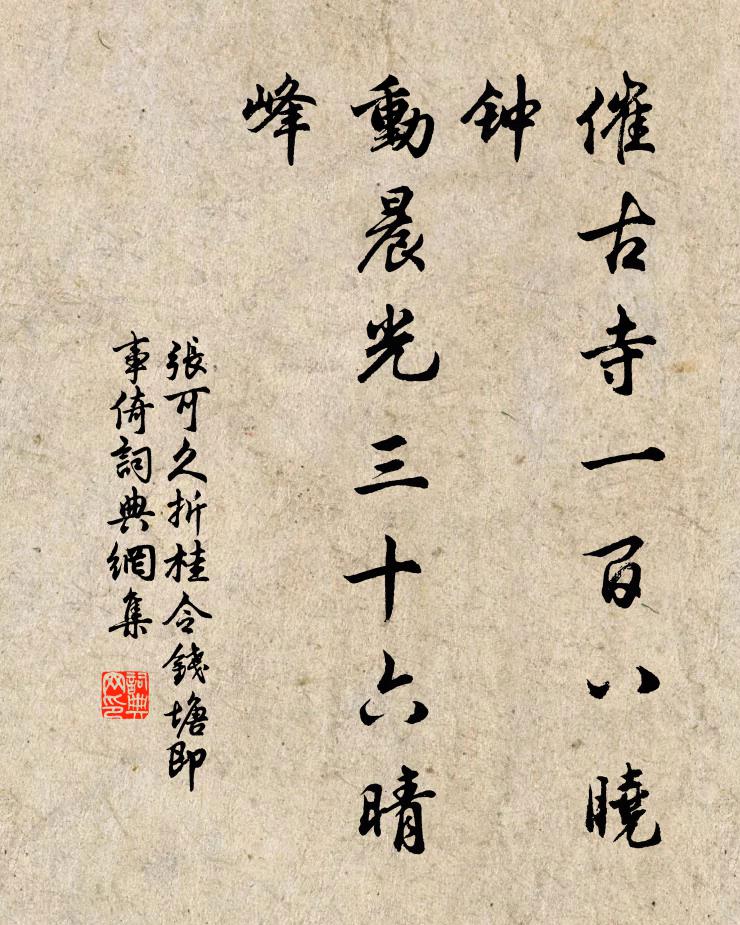 催古寺一百八曉
钟
動晨光三十六晴
峰
張可久折桂令錢塘即
事倚詞典網集
詞典
网印